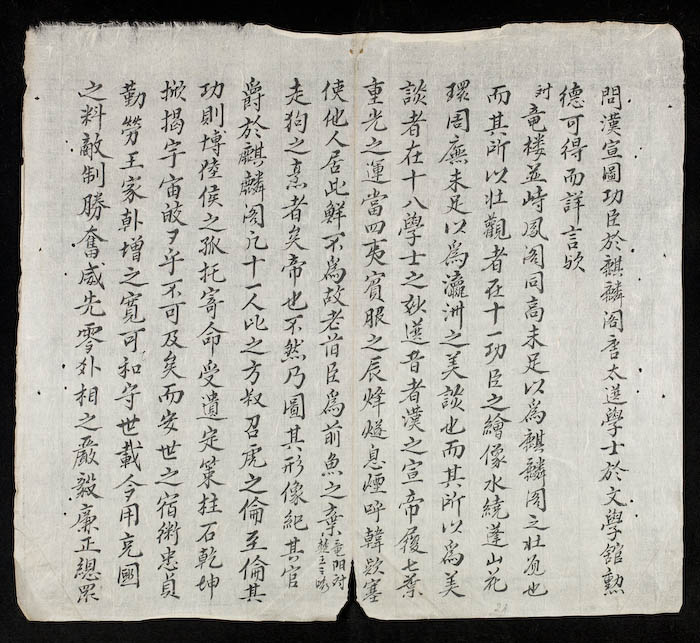 問漢宣圖功臣於麒麟阁唐太選學士於文學舘勲
德可得而詳言欤
対竜楼並峙鳳阁同高未足以爲麒麟阁之壮覌也
而其所以壮觀者在十一功臣之繪像水繞蓬山花
環周廡未足以爲瀛洲之美談也而其所以爲美
談者在十八學士之妙選昔者漢之宣帝履七葉
重光之運當四夷賓服之辰烽燧息煙呼韓欵塞
使他人居此鮮不爲故老旧臣爲前魚之棄竜陽対楚王之
走狗之烹者矣帝也不然乃圖其形像紀其官
爵於麒麟阁凢十一人比之方叔召虎之倫至倫其
功則博陸侯之孤托寄命受遺定策柱石乾坤
掀揭宇宙故乎不可及矣而安世之宿衛忠貞
勤勞王家韓增之寛可和守世載令用克國
之料敵制勝奮威先零外相之嚴毅廉正總眾